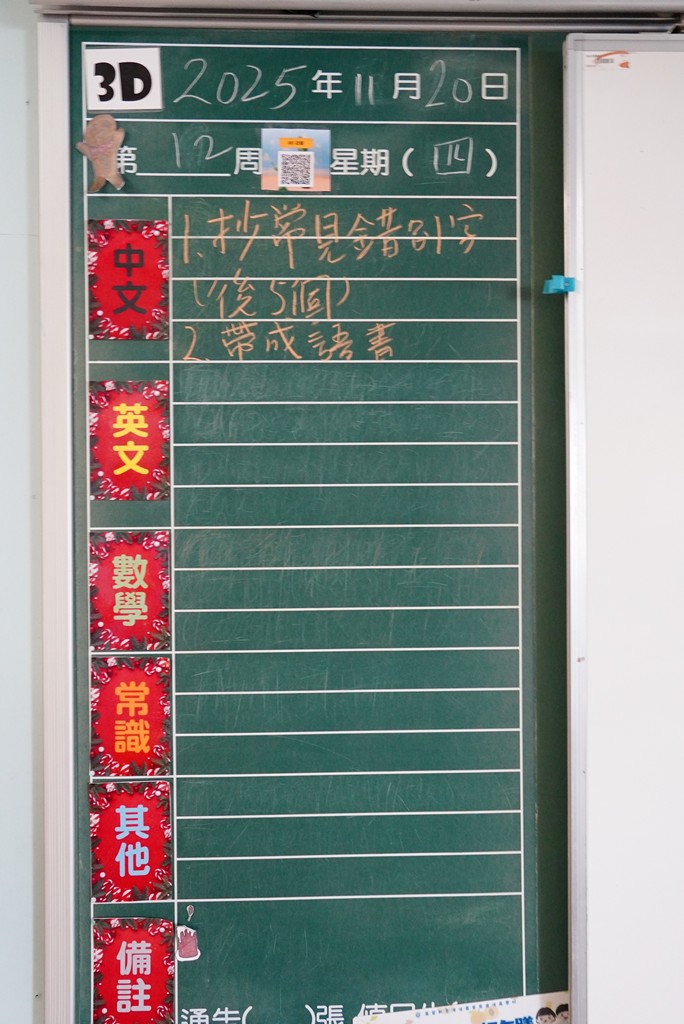 3D 2025年11月20日
第12周 星期(四)
中文
1. 抄常見錯別字
(後5個)
2. 帶成語書
英文
數學
常識
其他
備註
通告( )張